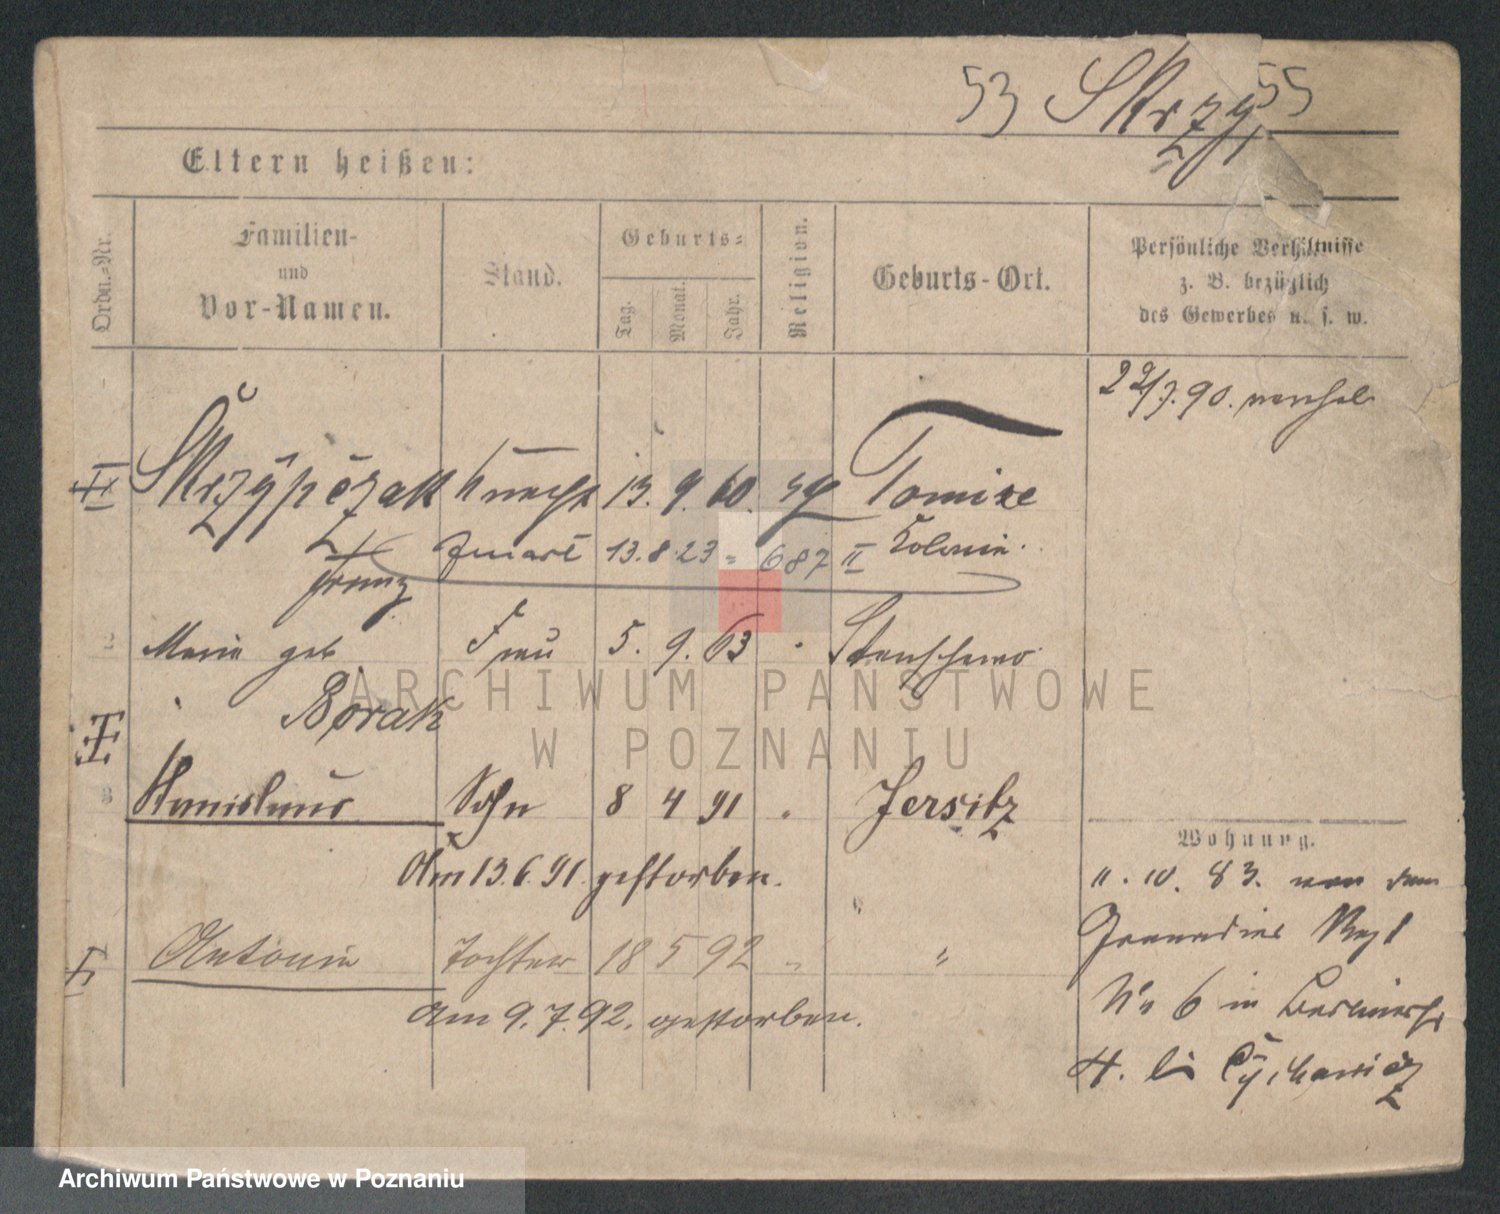 53 Skrzy, 55
Eltern heißen:
Ordn.-Nr.
Familien-
und
Vor-Namen.
Stand.
Geburts-
Tag.
Monat.
Jahr.
Religion.
Geburts-Ort.
Persönliche Verhältnisse
z. B. bezüglich
des Gewerbes u. s. w.
22/7. 90.
Skrzypczak Knecht 13. 9. 60. Tomice
13. 8. 23 = 687 II Kolonie.
Franz
Marie geb Frau 5. 9. 63 Stenschewo
Borak
ARCHIWUM PAŃSTWOWE
W POZNANIU
Stanislaus Sohn 8 4 91 " Jersitz
Wohnung.
Am 13.6.91. gestorben.
11. 10. 83. von dem
Grenadier Regt
Antonie Tochter 18 5 92 " "
No 6 in
Am 9.7.92. gestorben.
H. bei
Archiwum Państwowe w Poznaniu